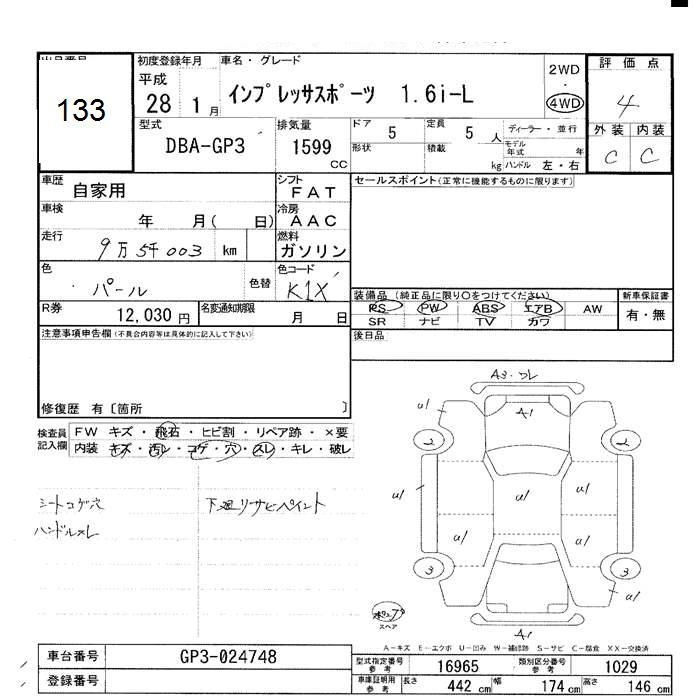 出品番号 初度登録年月 車名・グレード 評価点
133
平成 28 1月 インプレッサスポーツ 1.6i-L 2WD・4WD 4
型式 排気量 ドア 定員 ディーラー・並行 外装 内装
DBA-GP3 1599 CC 5 5人 モデル年式 年 C C
形状 積載 kg ハンドル 左・右
車歴 自家用 シフト FAT セールスポイント(正常に機能するものに限ります)
車検 年 月( 日) 冷房 AAC
走行 9万5千003 km 燃料 ガソリン
色 パール 色替 色コード K1X
装備品 (純正品に限り○をつけてください) 新車保証書
R券 12,030円 名変通知期限 月 日
PS PW ABS エアB AW 有・無
SR ナビ TV カワ
注意事項申告欄(不具合内容等は具体的に記入して下さい) 後日品
修復歴 有〔箇所 〕
検査員記入欄 FW キズ・飛石・ヒビ割・リペア跡・×要
内装 キズ・汚レ・コゲ・穴・スレ・キレ・破レ
シートコゲ穴 下廻リサビペイント
ハンドルスレ
A3・
A1
U1
2 2
U1 U1 U1
U1 U1
3 3
U1
スペア
A1
A-キズ E-エクボ U-凹み W-補修跡 S-サビ C-腐食 XX-交換済
車台番号 GP3-024748 型式指定番号 参考 16965 類別区分番号 参考 1029
登録番号 車庫証明用 参考 長さ 442 cm 幅 174 cm 高さ 146 cm